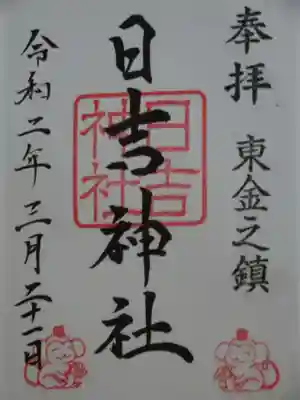 奉拝 東金之鎮
日吉神社
日吉神社
令和二年三月二十一日